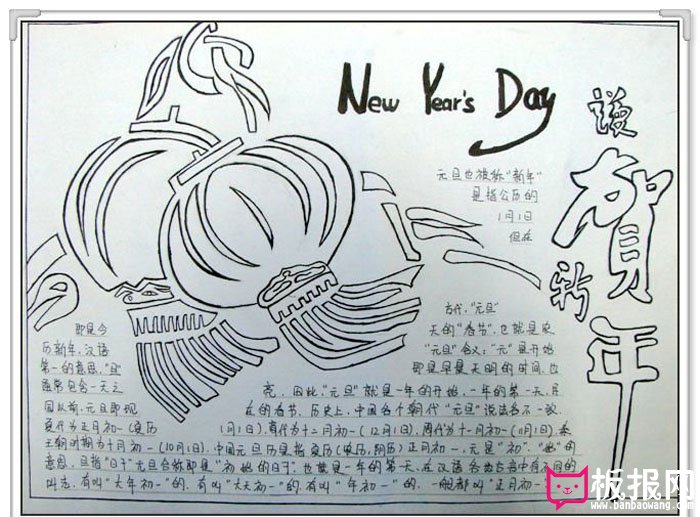 New Year's Day
谨
贺
新
年
元旦也被称"新年"
是指公历的
1月1日
但在
古代,"元旦"
即是今
天的"春节",也就是农
历新年,汉语
"元旦"含义:"元"是开始
第一的意思,"旦"
即是早晨天明的时间,也
通常包含一天之
亮,因此"元旦"就是一年的开始,一年的第一天,并
在的春节。历史上,中国各个朝代"元旦"说法各不一致
夏代为正月初一(夏历
1月1日),商代为十二月初一(12月1日),周代为十一月初一(11月1日),秦
王朝时期为十月初一(10月1日),中国元旦历是指夏历
正月初一,元是"初"、"始"的
意思,旦指"日子"元旦合称即是"初始的日子",也就是一年的第一天,在汉语各地方言中有不同的
叫法,有叫"大年初一"的,有叫"大天初一"的,有叫"年初一"的,一般都叫"正月初一"
板报网
www.banbaowang.com